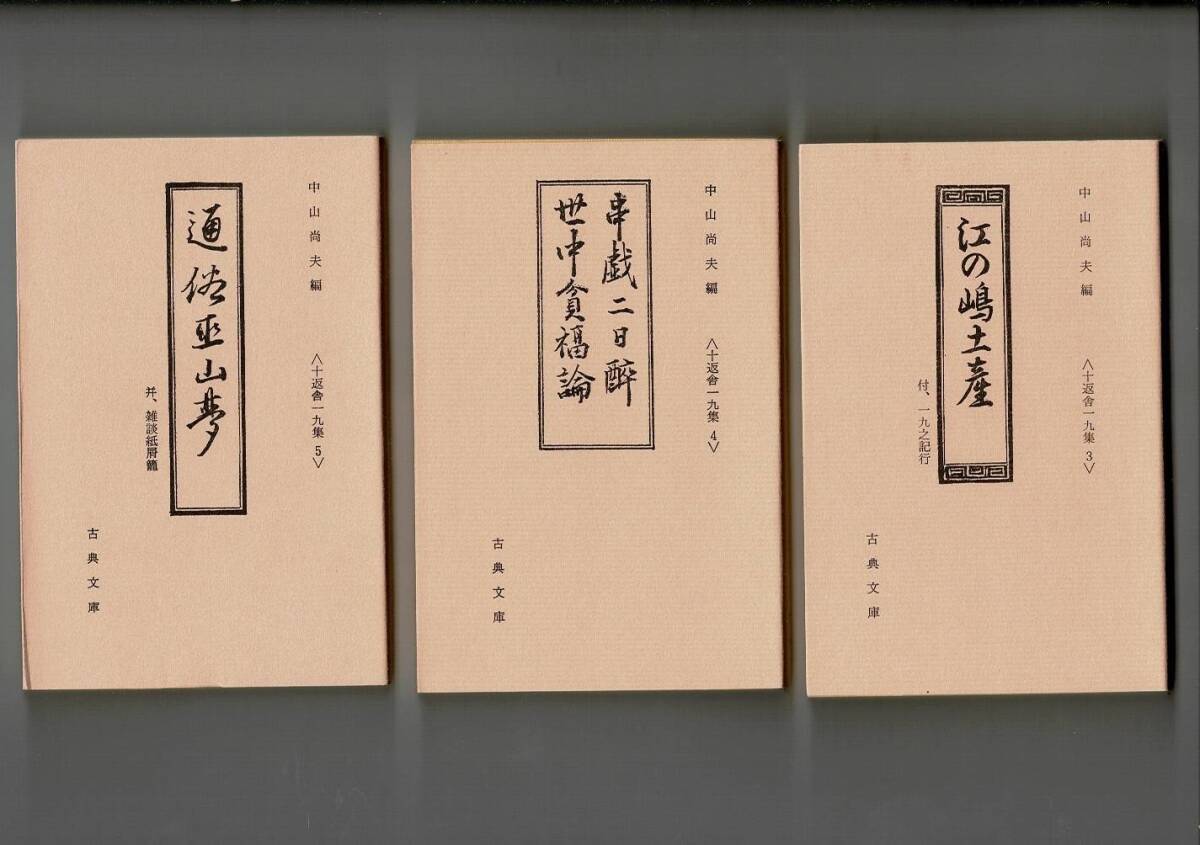 中山尚夫編 〈十返舎一九集 3〉
江の嶋土産
付、一九之記行
古典文庫
中山尚夫編 〈十返舎一九集 4〉
串戯二日酔
世中貧福論
古典文庫
中山尚夫編 〈十返舎一九集 5〉
通俗巫山夢
并、雑談紙屑籠
古典文庫